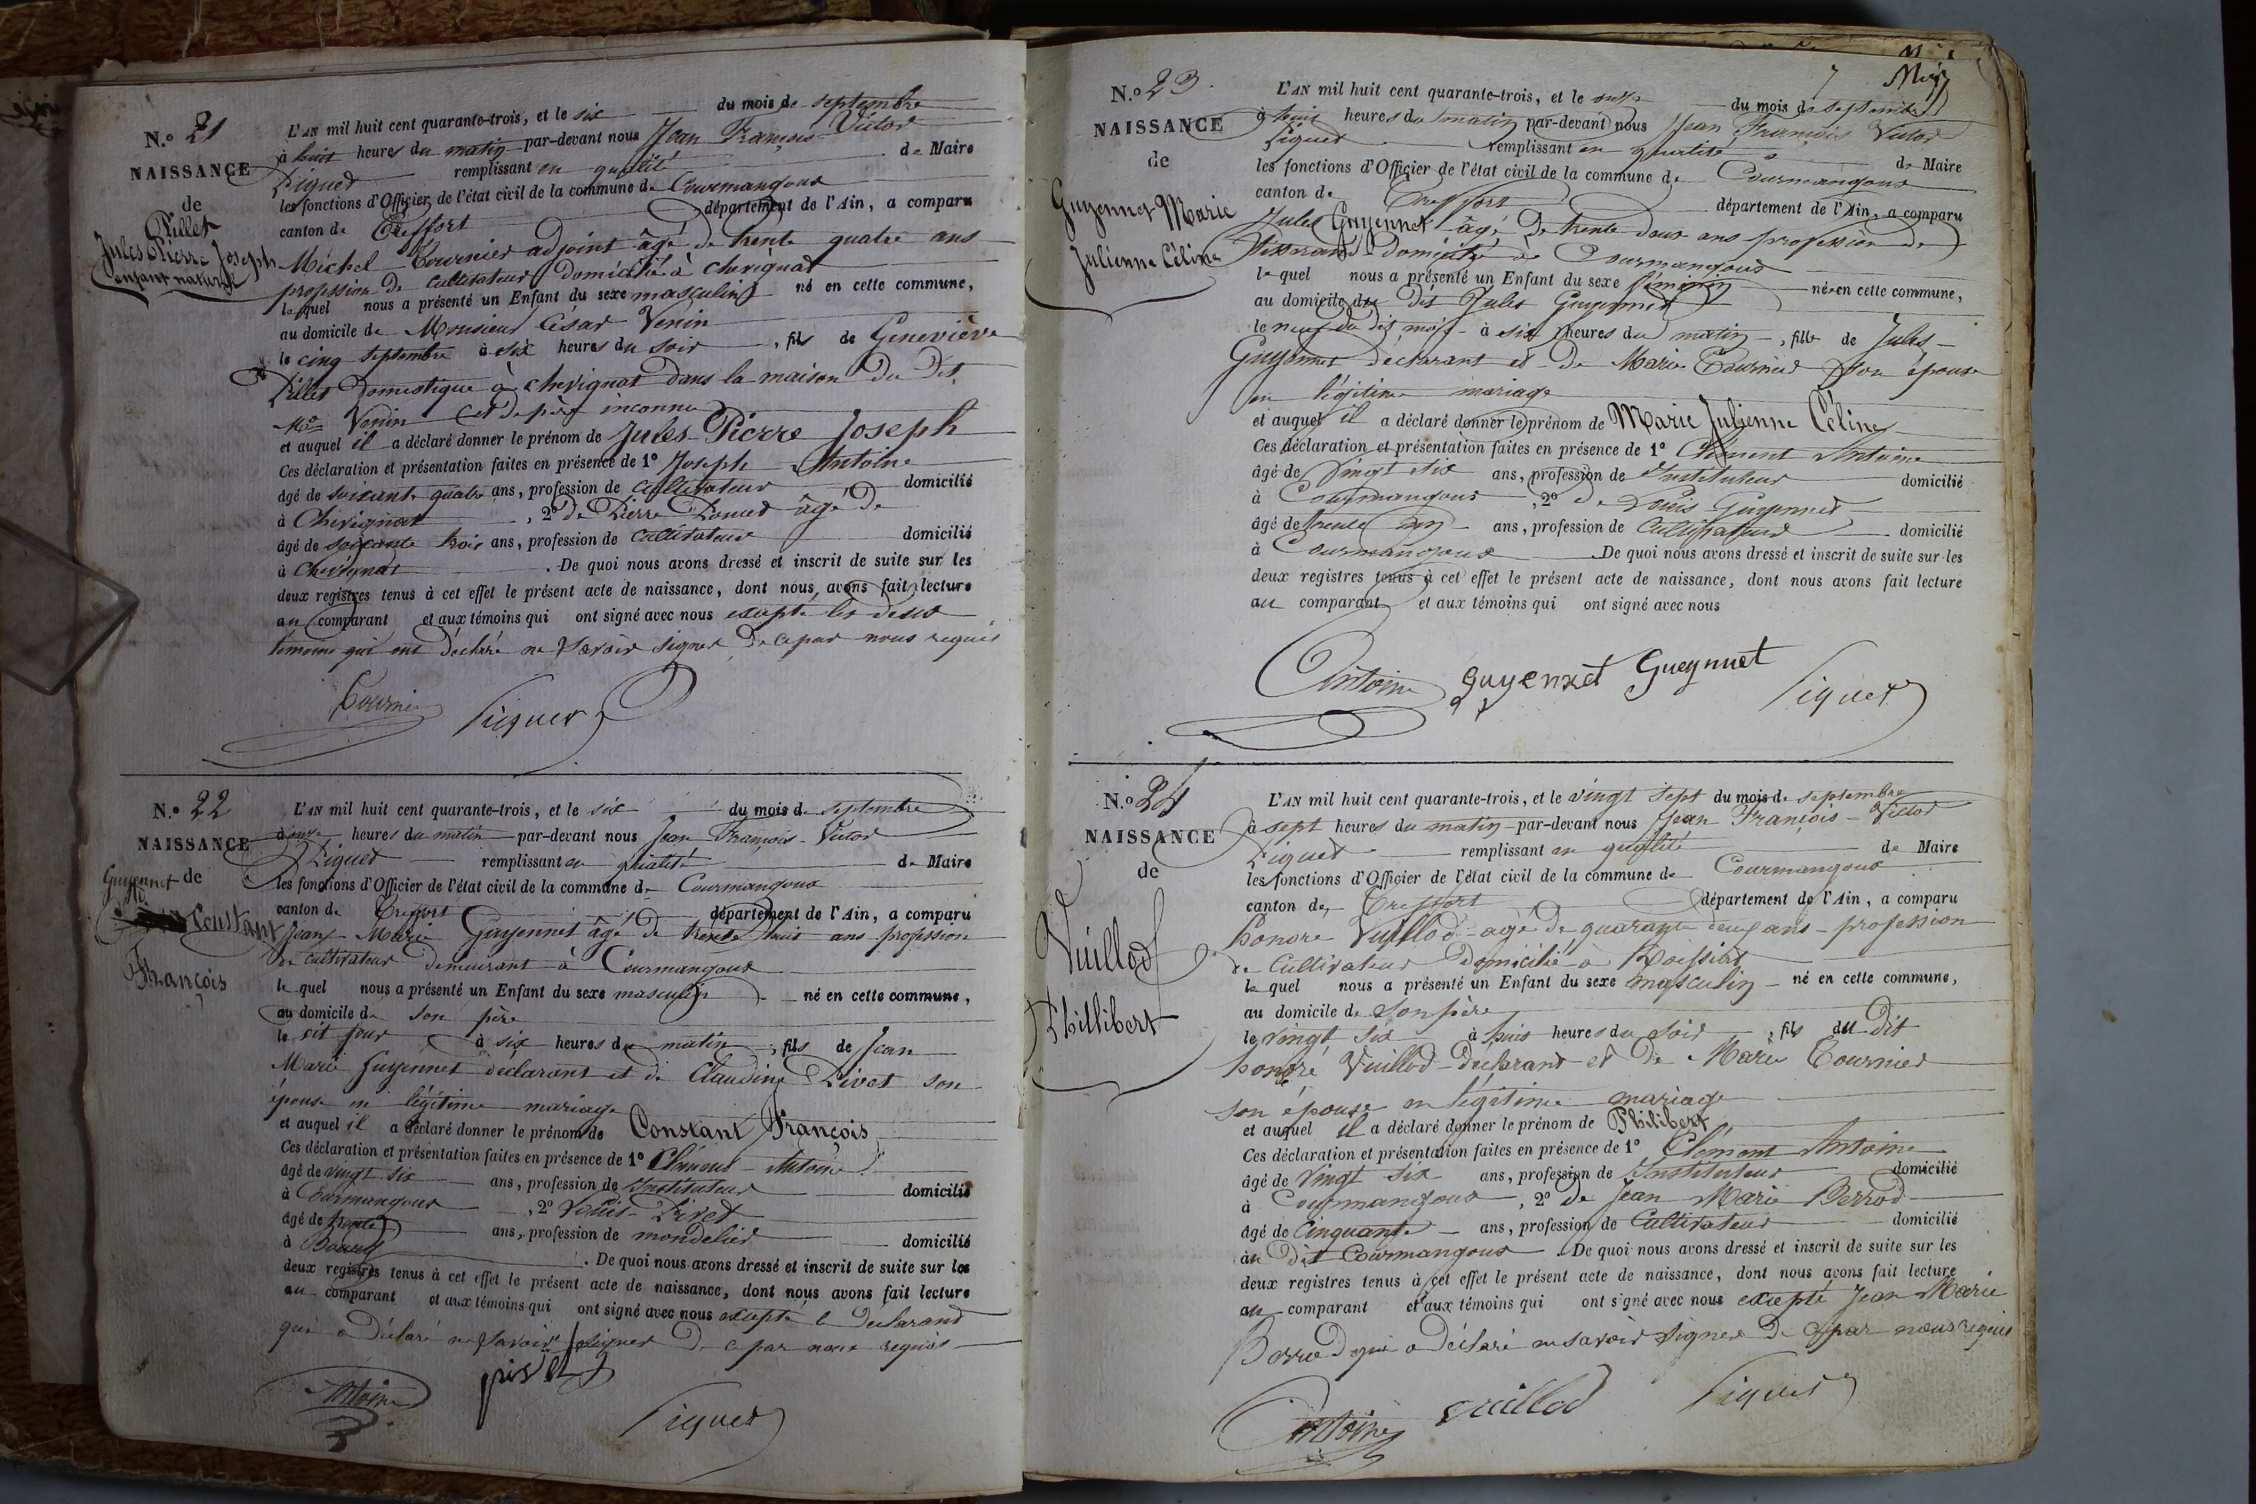 N.º 21
NAISSANCE
de
Pillet
Jules Pierre Joseph
enfant naturel
L'AN mil huit cent quarante-trois, et le six du mois de septembre
à huit heures du matin par-devant nous Jean François Victor
Piquet remplissant en qualité de Maire
les fonctions d'Officier de l'état civil de la commune de Courmangoux
canton de Treffort département de l'Ain, a comparu
Michel Tournier adjoint âgé de trente quatre ans
profession de cultivateur domicilié à chevignat
lequel nous a présenté un Enfant du sexe masculin né en cette commune,
au domicile de Monsieur César Venin
le cinq septembre à six heures du soir, fils de Geneviève
Pillet domestique à chevignat dans la maison du dit
Mr Venin et de père inconnu
et auquel il a déclaré donner le prénom de Jules-Pierre Joseph
Ces déclaration et présentation faites en présence de 1º Joseph Antoine
âgé de soixante quatre ans, profession de cultivateur domicilié
à Chevignat, 2º de Pierre âgé de
âgé de soixante trois ans, profession de cultivateur domicilié
à Chevignat. De quoi nous avons dressé et inscrit de suite sur les
deux registres tenus à cet effet le présent acte de naissance, dont nous avons fait lecture
au comparant et aux témoins qui ont signé avec nous excepté les deux
témoins qui ont déclaré ne savoir signer de ce par nous requis
Tournier Piquet
N.º 22
NAISSANCE
de
Guyennet
Constant
François
L'AN mil huit cent quarante-trois, et le six du mois de septembre
à onze heures du matin par-devant nous Jean François-Victor
Piquet remplissant en qualité de Maire
les fonctions d'Officier de l'état civil de la commune de Courmangoux
canton de Treffort département de l'Ain, a comparu
Jean Marie Guyennet âgé de trente huit ans profession
de cultivateur demeurant à Courmangoux
lequel nous a présenté un Enfant du sexe masculin né en cette commune,
au domicile de son père
le dit jour à six heures du matin, fils de Jean
Marie Guyennet déclarant et de Claudine Pivet son
épouse en légitime mariage
et auquel il a déclaré donner le prénom de Constant François
Ces déclaration et présentation faites en présence de 1º Clément Antoine
âgé de vingt six ans, profession de Instituteur domicilié
à Courmangoux, 2º Louis Pivet
âgé de trente ans, profession de domicilié
à. De quoi nous avons dressé et inscrit de suite sur les
deux registres tenus à cet effet le présent acte de naissance, dont nous avons fait lecture
au comparant et aux témoins qui ont signé avec nous excepté le declarand
qui a déclaré ne savoir signer de ce par nous requis
Antoine Piquet
N.º 23
NAISSANCE
de
Guyennet Marie
Julienne Céline
L'AN mil huit cent quarante-trois, et le onze du mois de septembre
à huit heures du matin par-devant nous Jean François Victor
Piquet remplissant en qualité de Maire
les fonctions d'Officier de l'état civil de la commune de Courmangoux
canton de Treffort département de l'Ain, a comparu
Jules Guyennet âgé de trente deux ans profession de
tisserand domicilié à Courmangoux
lequel nous a présenté un Enfant du sexe féminin née en cette commune,
au domicile du dit Jules Guyennet
le neuf du dit mois à six heures du matin, fille de Jules
Guyennet déclarant et de Marie Tournier son épouse
en légitime mariage
et auquel il a déclaré donner le prénom de Marie Julienne Céline
Ces déclaration et présentation faites en présence de 1º Clément Antoine
âgé de vingt six ans, profession de Instituteur domicilié
à Courmangoux, 2º de Louis Guyennet
âgé de trente ans, profession de Cultivateur domicilié
à Courmangoux. De quoi nous avons dressé et inscrit de suite sur les
deux registres tenus à cet effet le présent acte de naissance, dont nous avons fait lecture
au comparant et aux témoins qui ont signé avec nous
Antoine guyennet Gueynnet Piquet
N.º 24
NAISSANCE
de
Vuillod
Phillibert
L'AN mil huit cent quarante-trois, et le vingt sept du mois de septembre
à sept heures du matin par-devant nous Jean François-Victor
Piquet remplissant en qualité de Maire
les fonctions d'Officier de l'état civil de la commune de Courmangoux
canton de Treffort département de l'Ain, a comparu
honoré Vuillod âgé de quarante ans profession
de Cultivateur domicilié à Roissiat
lequel nous a présenté un Enfant du sexe masculin né en cette commune,
au domicile de son père
le vingt six à huit heures du soir, fils du dit
honoré Vuillod declarant et de Marie Tournier
son épouse en légitime mariage
et auquel il a déclaré donner le prénom de Philibert
Ces déclaration et présentation faites en présence de 1º Clément Antoine
âgé de vingt six ans, profession de Instituteur domicilié
à Courmangoux, 2º de Jean Marie Berrod
âgé de Cinquante ans, profession de Cultivateur domicilié
au dit Courmangoux. De quoi nous avons dressé et inscrit de suite sur les
deux registres tenus à cet effet le présent acte de naissance, dont nous avons fait lecture
au comparant et aux témoins qui ont signé avec nous excepté Jean Marie
Berrod qui a déclaré ne savoir signer de ce par nous requis
Antoine vuillod Piquet